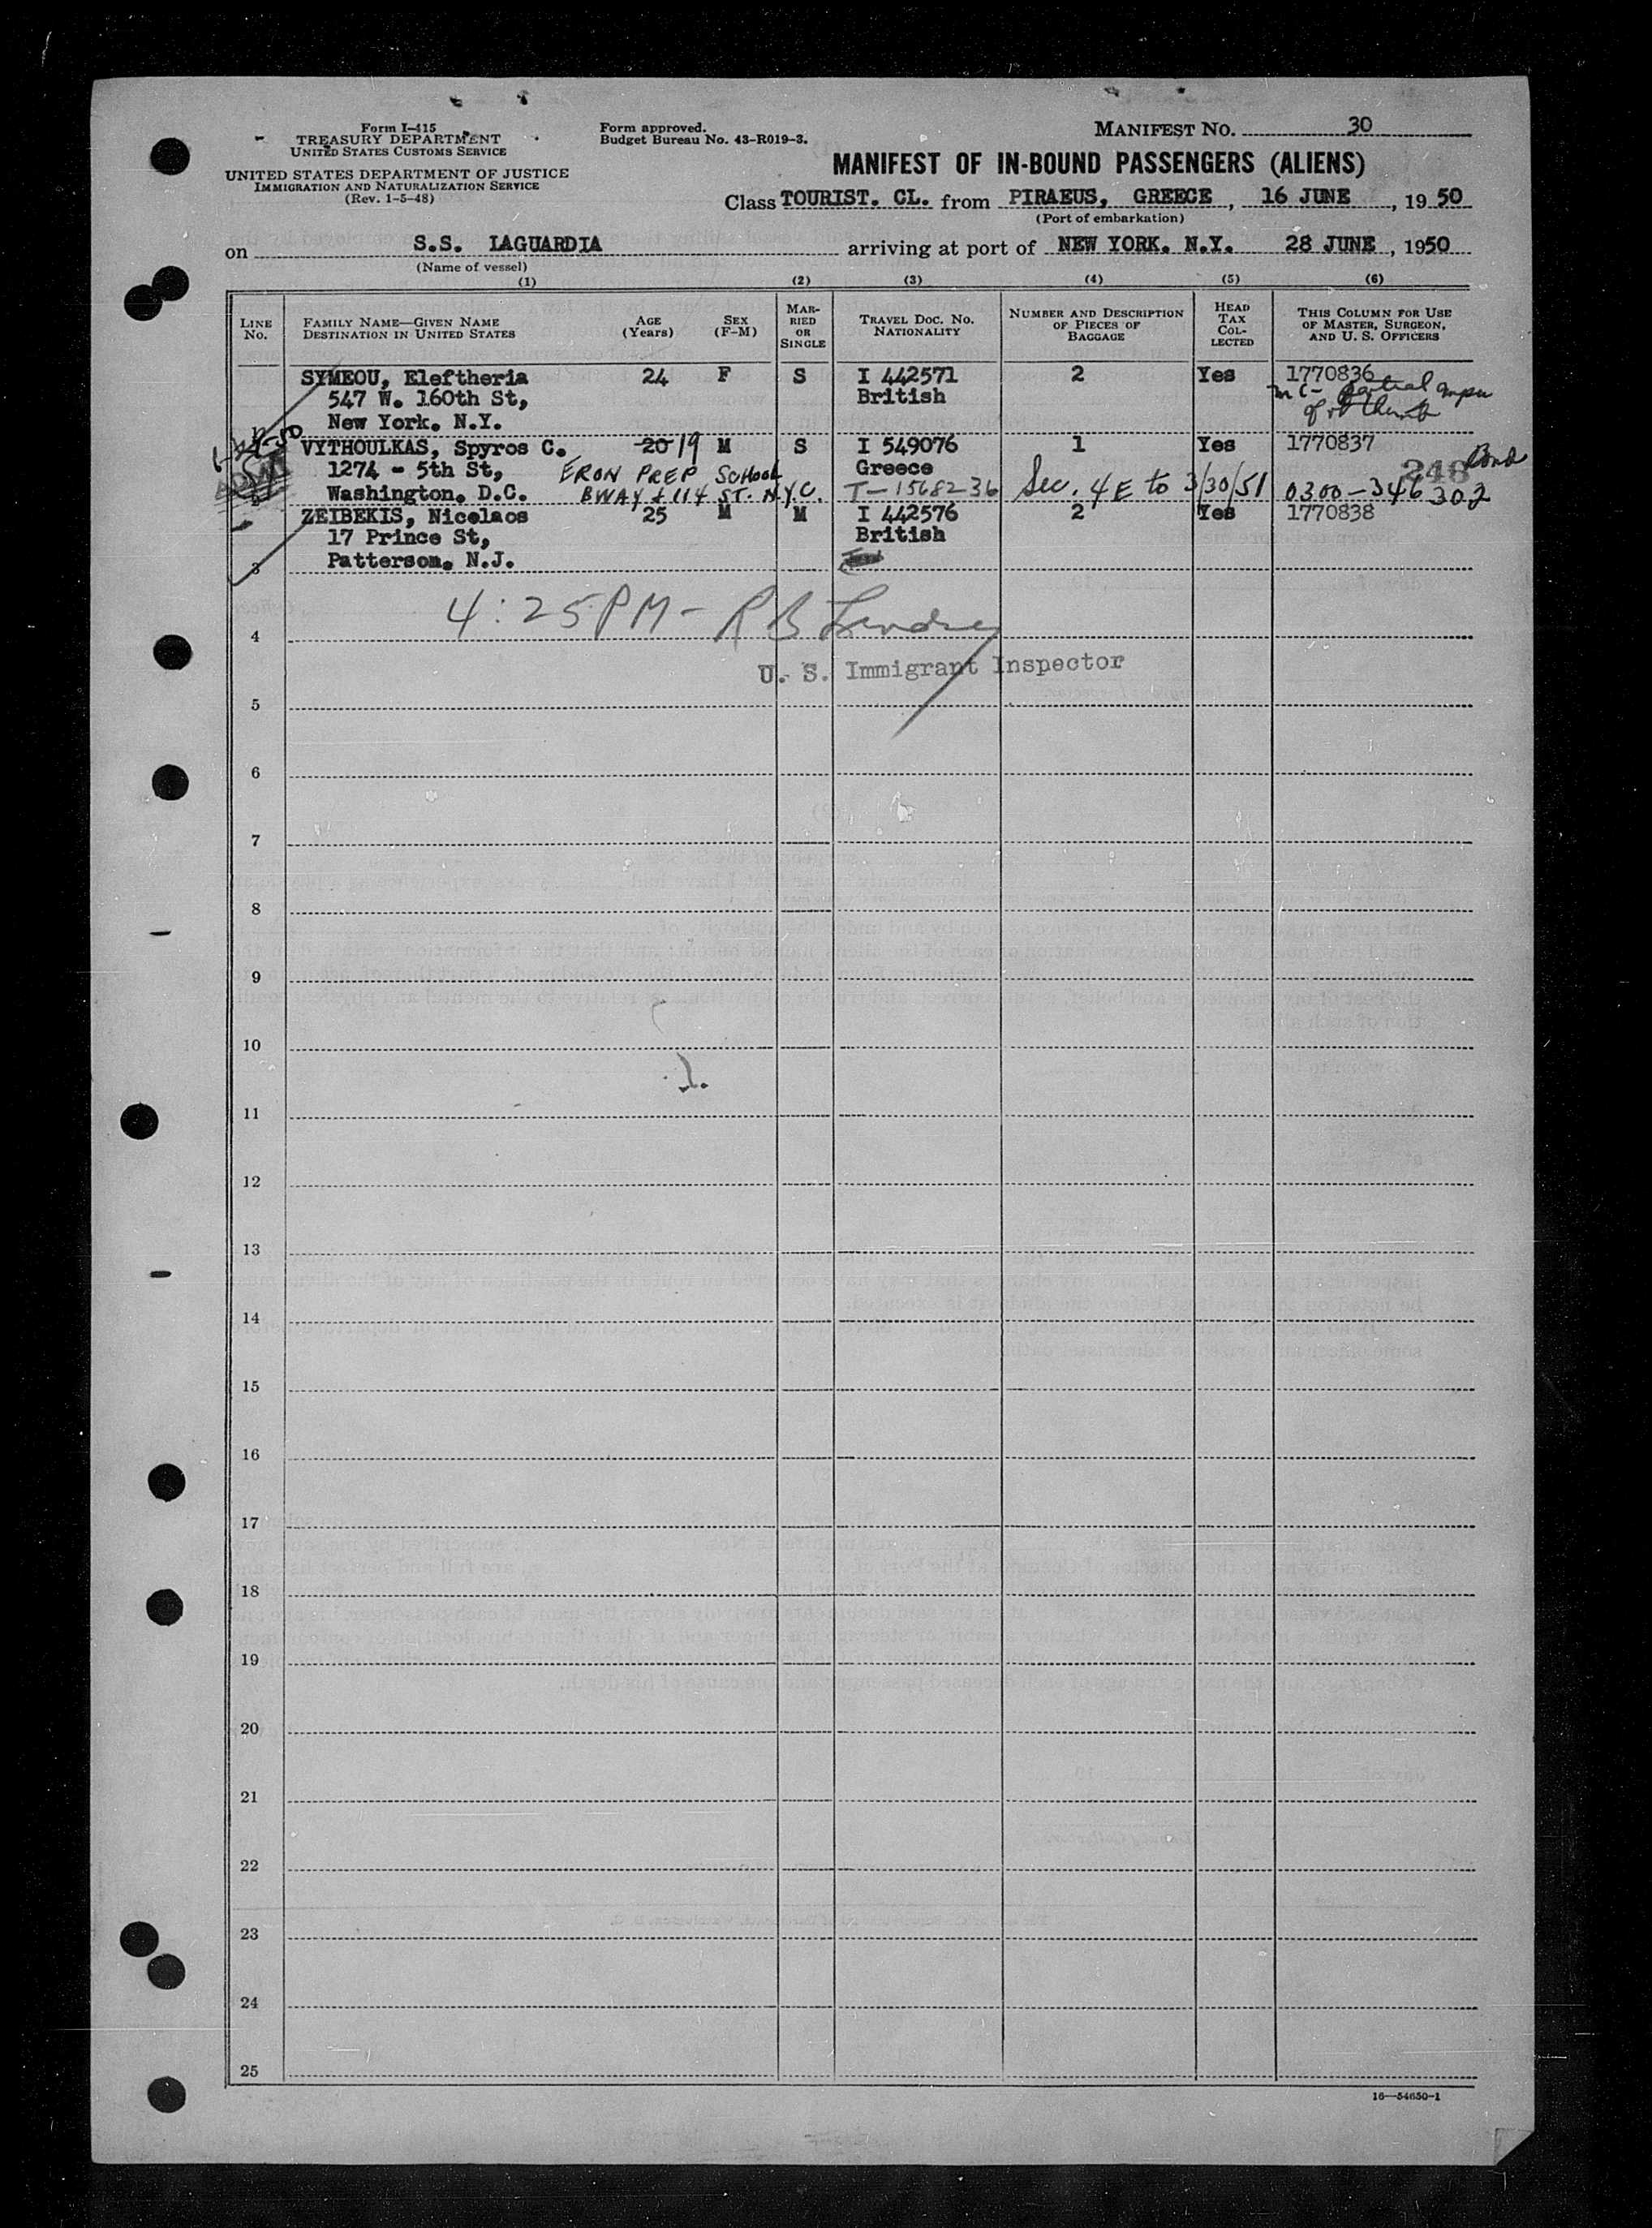 Form I-415
TREASURY DEPARTMENT
UNITED STATES CUSTOMS SERVICE
UNITED STATES DEPARTMENT OF JUSTICE
IMMIGRATION AND NATURALIZATION SERVICE
(Rev. 1-5-48)
Form approved.
Budget Bureau No. 43-R019-3.
MANIFEST NO. 30
MANIFEST OF IN-BOUND PASSENGERS (ALIENS)
Class TOURIST. CL. from PIRAEUS, GREECE, 16 JUNE, 1950
(Port of embarkation)
on S.S. LAGUARDIA arriving at port of NEW YORK. N.Y. 28 JUNE, 1950
(Name of vessel)
(1) (2) (3) (4) (5) (6)
LINE No.
FAMILY NAME—GIVEN NAME
DESTINATION IN UNITED STATES
AGE (Years)
SEX (F-M)
MARRIED OR SINGLE
TRAVEL DOC. NO. NATIONALITY
NUMBER AND DESCRIPTION OF PIECES OF BAGGAGE
HEAD TAX COLLECTED
THIS COLUMN FOR USE OF MASTER, SURGEON, AND U. S. OFFICERS
SYMEOU, Eleftheria 24 F S I 442571 2 Yes 1770836
547 W. 160th St, British
New York. N.Y.
VYTHOULKAS, Spyros C. 20 19 M S I 549076 1 Yes 1770837
1274 - 5th St, ERON PREP SCHOOL Greece 248 Bond
Washington. D.C. BWAY & 114 ST. N.Y.C. T-1568236 Sec. 4E to 3/30/51 0300-346302
ZEIBEKIS, Nicolaos 25 M M I 442576 2 Yes 1770838
17 Prince St, British
Patterson. N.J.
3
4:25 PM - R B
4
U. S. Immigrant Inspector
5
6
7
8
9
10
11
12
13
14
15
16
17
18
19
20
21
22
23
24
25
16—54650-1